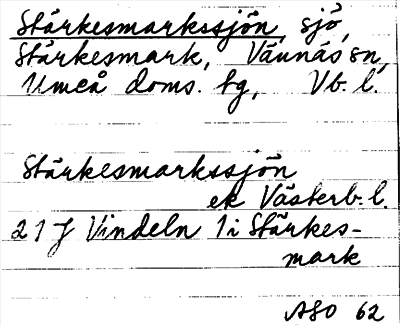 Stärkesmarkssjön, sjö,
Stärkesmark, Vännäs sn,
Umeå doms. tg, Vb. l.
Stärkesmarkssjön
ek Västerb. l.
21 J Vindeln 1 i Stärkes-
mark
ASO 62